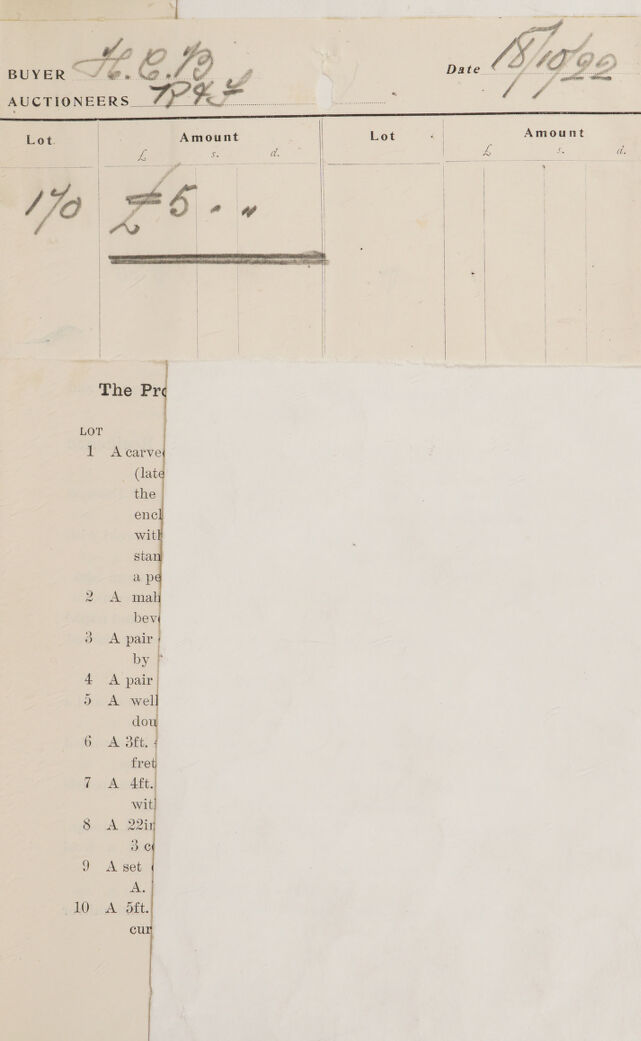 BUYER H. C. B Date 18/10/22
AUCTIONEERS R & F
Lot Amount Lot Amount
£ s. d. £ s. d.
170 £5 . "
The Pro
LOT
1 A carve
(late
the
encl
with
stan
a pe
2 A mah
beve
3 A pair
by
4 A pair
5 A well
dou
6 A 3ft.
fret
7 A 4ft.
with
8 A 22in
3 c
9 A set
A.
10 A 5ft.
cur